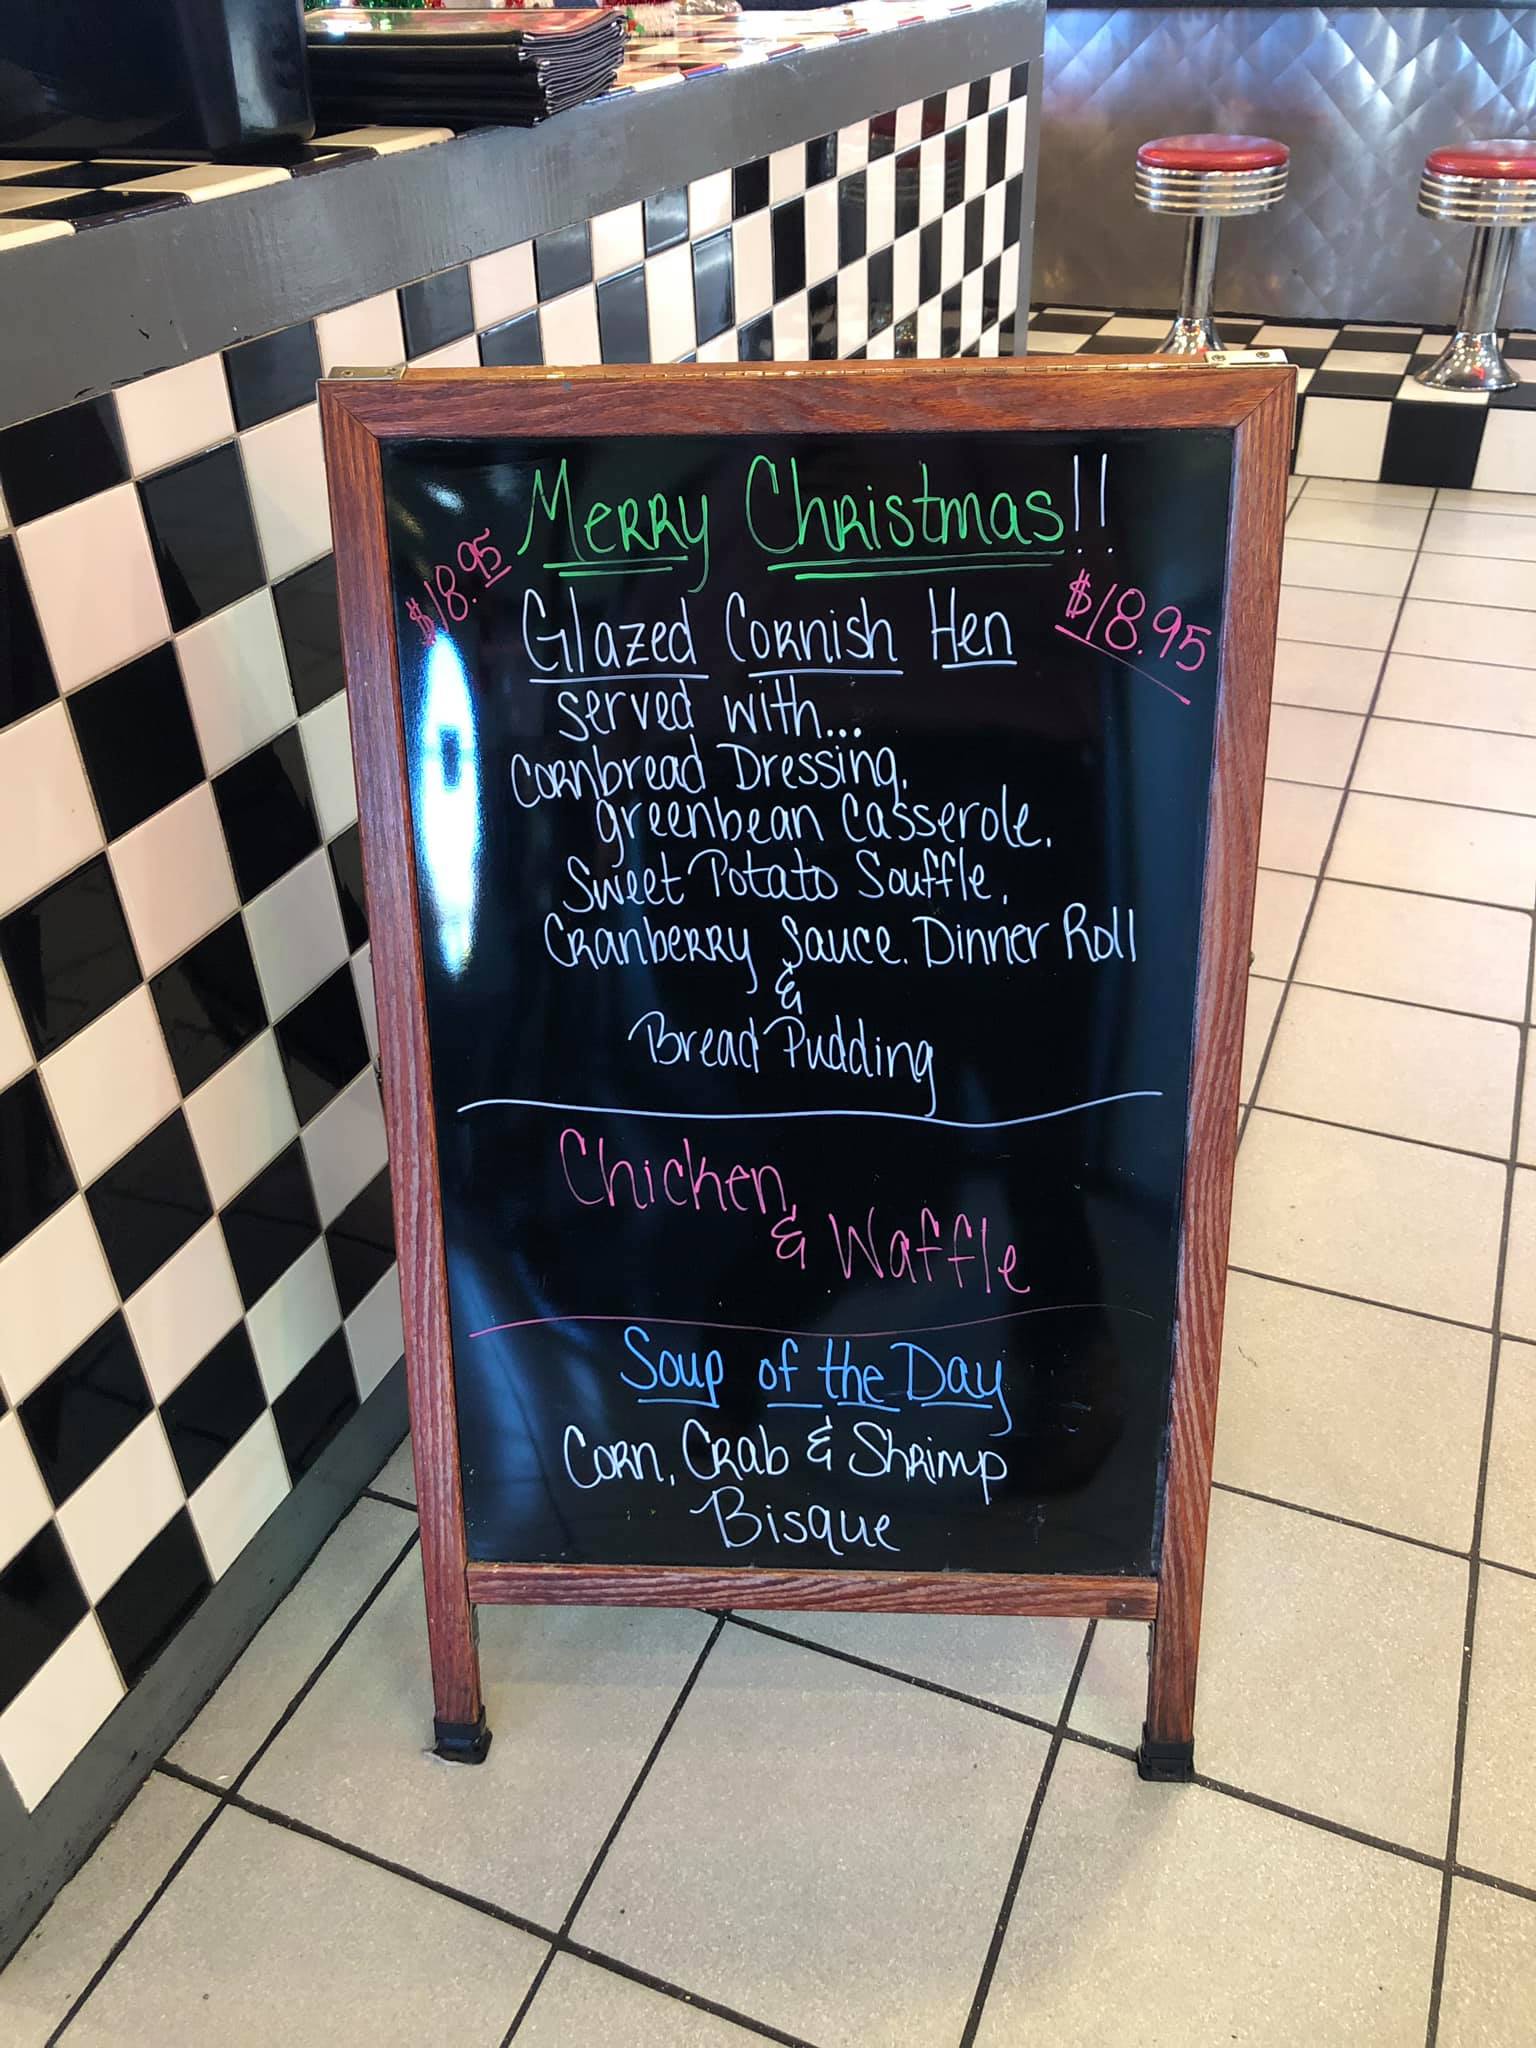 Merry Christmas!!
$18.95
$18.95
Glazed Cornish Hen
served with...
Cornbread Dressing,
greenbean Casserole,
Sweet Potato Souffle,
Cranberry Sauce, Dinner Roll
&
Bread Pudding
Chicken
& Waffle
Soup of the Day
Corn, Crab & Shrimp
Bisque